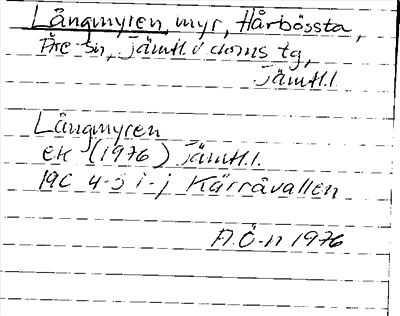 Långmyren, myr, Hårbössta,
Åre sn, Jämtl. v doms tg,
Jämtl. l
Långmyren
ek (1976) Jämtl. l.
19C 4-5 i-j Kärråvallen
A.Ö-n 1976